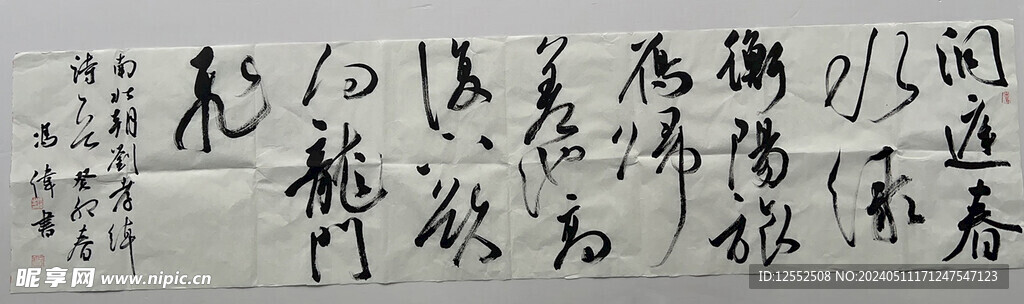 洞庭春
水緑
衡陽旅
鴈歸
差池高
復下欲
向龍門
飛
南北朝劉孝綽
詩 癸卯春
馮偉書
昵享网 www.nipic.cn
ID:12552508 NO:20240511171247547123